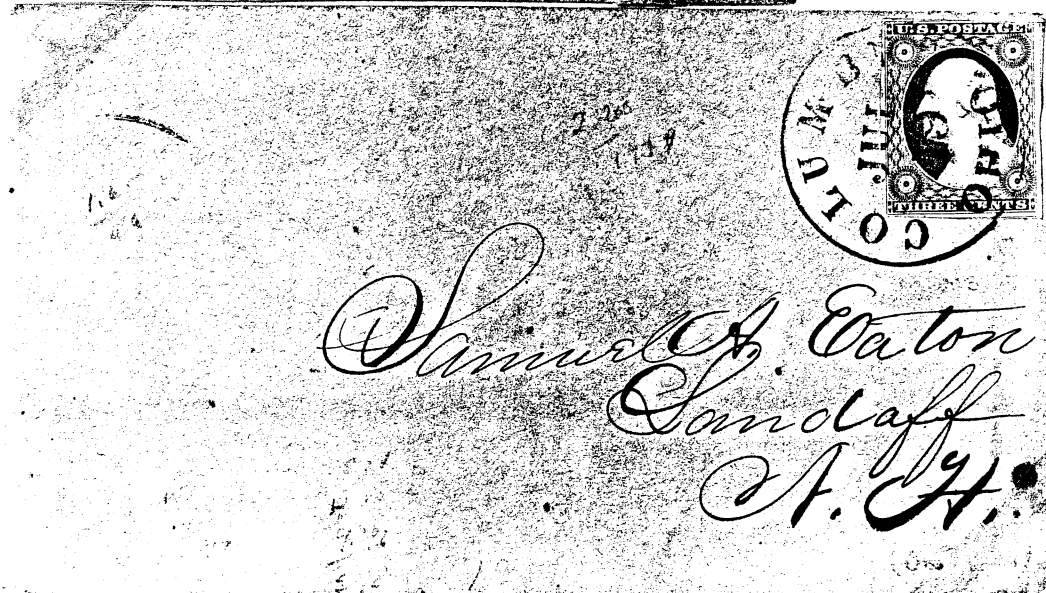 U.S. POSTAGE
THREE CENTS
COLUMB
OHIO
JUL
Samuel A. Eaton
Landaff
N. H.